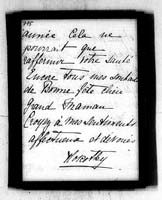 année Cela ne
pourrait que
raffermir votre santé
Encore tous mes souhaits
de Bonne fête chère
grand Maman
Croyez à mes sentiments
affectueux et dévoués
Dorothy